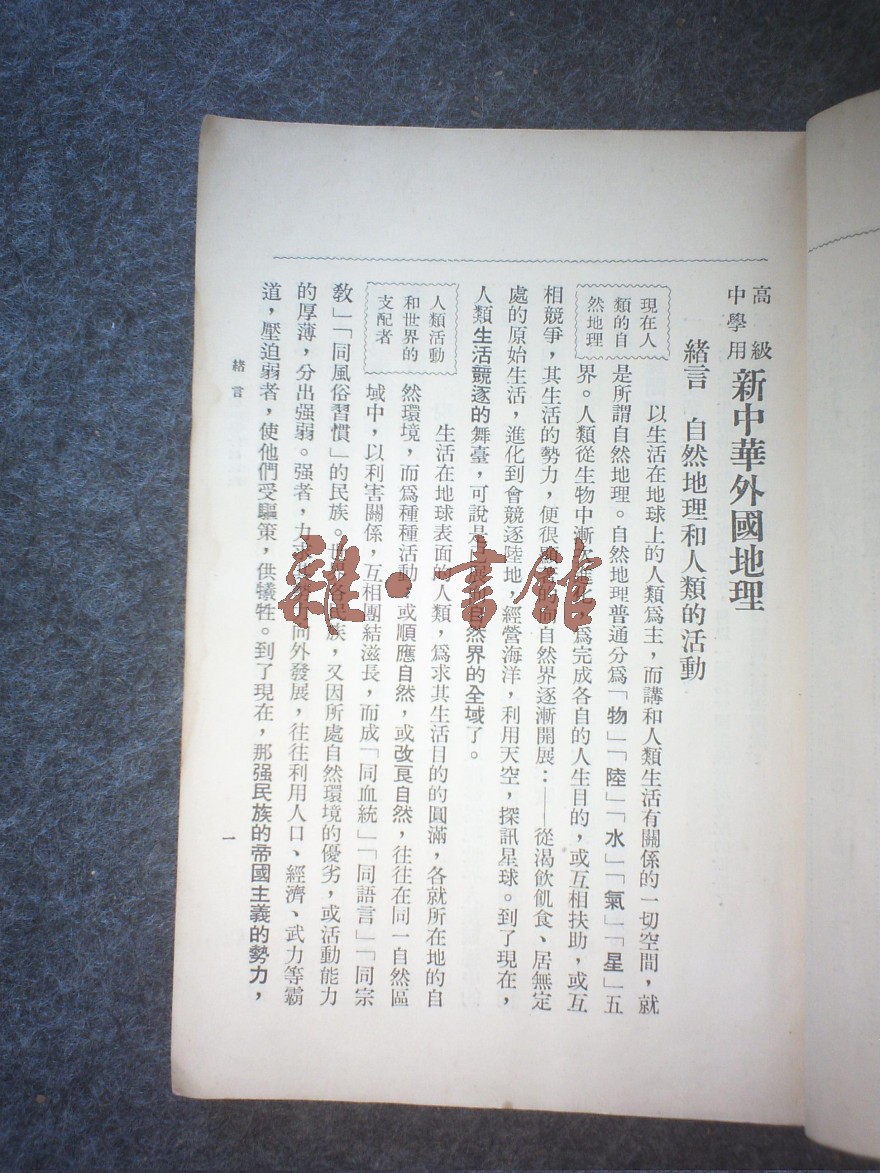 高級
中學用
新中華外國地理
緒言 自然地理和人類的活動
現在人
類的自
然地理
以生活在地球上的人類爲主，而講和人類生活有關係的一切空間，就
是所謂自然地理。自然地理普通分爲「物」「陸」「水」「氣」「星」五
界。人類從生物中漸次進化，爲完成各自的人生目的，或互相扶助，或互
相競爭，其生活的勢力，便很 自然界逐漸開展：——從渴飲飢食、居無定
處的原始生活，進化到會競逐陸地，經營海洋，利用天空，探訊星球。到了現在，
人類生活競逐的舞臺，可說是 自然界的全域了。
人類活動
和世界的
支配者
生活在地球表面的人類，爲求其生活目的的圓滿，各就所在地的自
然環境，而爲種種活動 或順應自然，或改良自然，往往在同一自然區
域中，以利害關係，互相團結滋長，而成「同血統」「同語言」「同宗
教」「同風俗習慣」的民族。世界各民族，又因所處自然環境的優劣，或活動能力
的厚薄，分出强弱。强者，力 向外發展，往往利用人口、經濟、武力等霸
道，壓迫弱者，使他們受驅策，供犧牲。到了現在，那强民族的帝國主義的勢力，
緒言
一
雜·書館